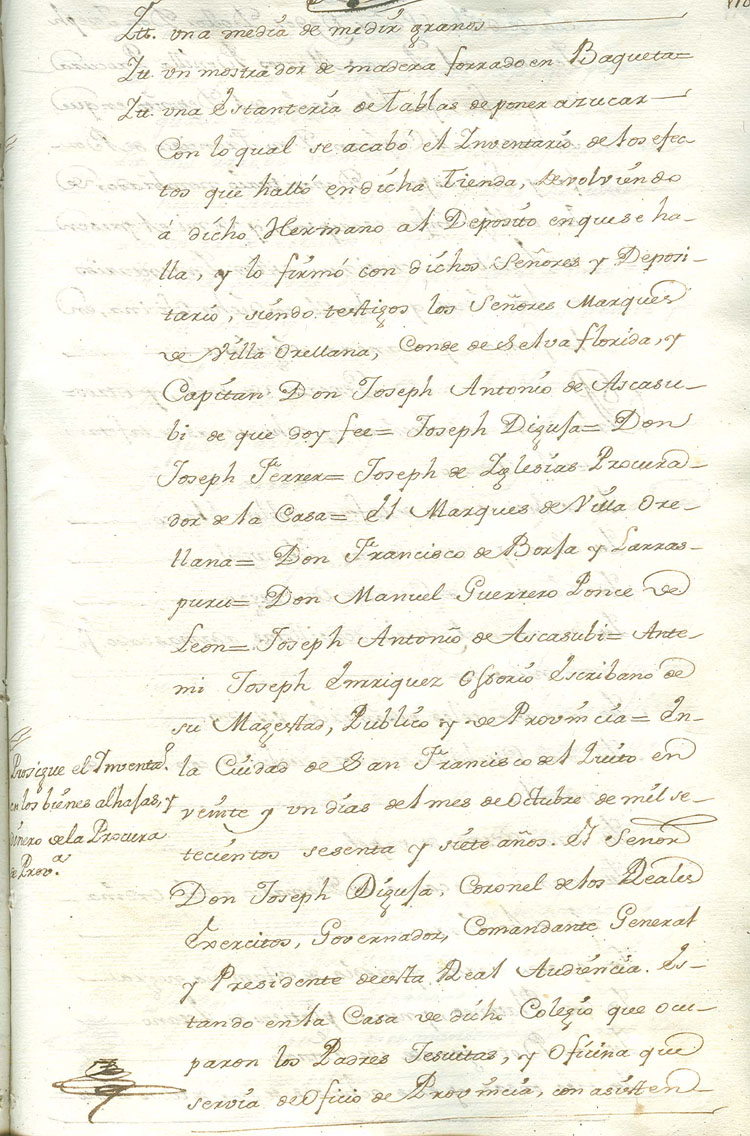 Itt. una media de medir granos
Itt. un mostrador de madera forrado en Baqueta=
Itt. una Estanteria de tablas de poner azucar—
Con lo qual se acabó el Inventario de los efec-
tos que halló en dicha Tienda, devolviendo
á dicho Hermano al Deposito en que se ha-
lla, y lo firmó con dichos Señores y Deposi-
tario, siendo testigos los Señores Marques
de Villa Orellana, Conde de Selva florida, y
Capitan Don Joseph Antonio de Ascasu-
bi de que doy fee= Joseph Diguja= Don
Joseph Ferrer= Joseph de Iglesias Procura-
dor de la Casa= El Marques de Villa Ore-
llana= Don Francisco de Borja y Larras-
puru= Don Manuel Guerrero Ponce de
Leon= Joseph Antonio de Ascasubi= Ante-
mi Joseph Enrriquez Ossorio Escribano de
su Magestad, Publico y de Provincia= En-
Prosigue el Inventaº.
en los bienes alhajas, y
dinero de la Procura
de Provª.
la Ciudad de San Francisco del Quito en
veinte y un dias del mes de Octubre de mil se-
tecientos sesenta y siete años. El Señor
Don Joseph Diguja, Coronel de los Reales
Exercitos, Governador, Comandante General
y Presidente de esta Real Audiencia. Es-
tando en la Casa de dicho Colegio que ocu-
paron los Padres Jesuitas, y Oficina que
servia de Oficio de Provincia, con asisten-